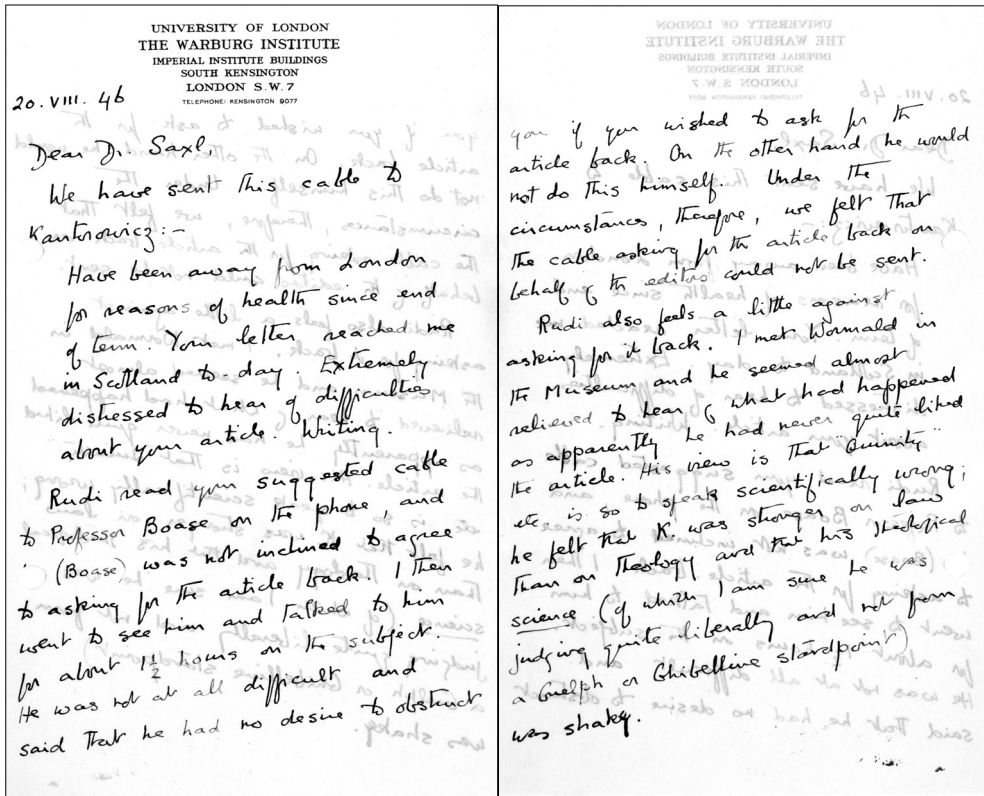 UNIVERSITY OF LONDON
THE WARBURG INSTITUTE
IMPERIAL INSTITUTE BUILDINGS
SOUTH KENSINGTON
LONDON S.W.7
TELEPHONE: KENSINGTON 9077
20. VIII. 46
Dear Dr. Saxl,
We have sent this cable to
Kantorowicz:-
Have been away from London
for reasons of health since end
of term. Your letter reached me
in Scotland to-day. Extremely
distressed to hear of difficulties
about your article. Writing.
Rudi read your suggested cable
to Professor Boase on the phone, and
(Boase) was not inclined to agree
to asking for the article back. I then
went to see him and talked to him
for about 1½ hours on the subject.
He was not at all difficult and
said that he had no desire to obstruct
you if you wished to ask for the
article back. On the other hand he would
not do this himself. Under the
circumstances, therefore, we felt that
the cable asking for the article back on
behalf of the editors could not be sent.
Rudi also feels a little against
asking for it back. I met Wormald in
the Museum and he seemed almost
relieved to hear of what had happened
as apparently he had never quite liked
the article. His view is that "Quinity"
etc. is so to speak scientifically wrong;
he felt that K. was stronger on law
than on theology and that his theological
science (of which I am sure he was
judging quite liberally and not from
a Guelph or Ghibelline standpoint)
was shaky.